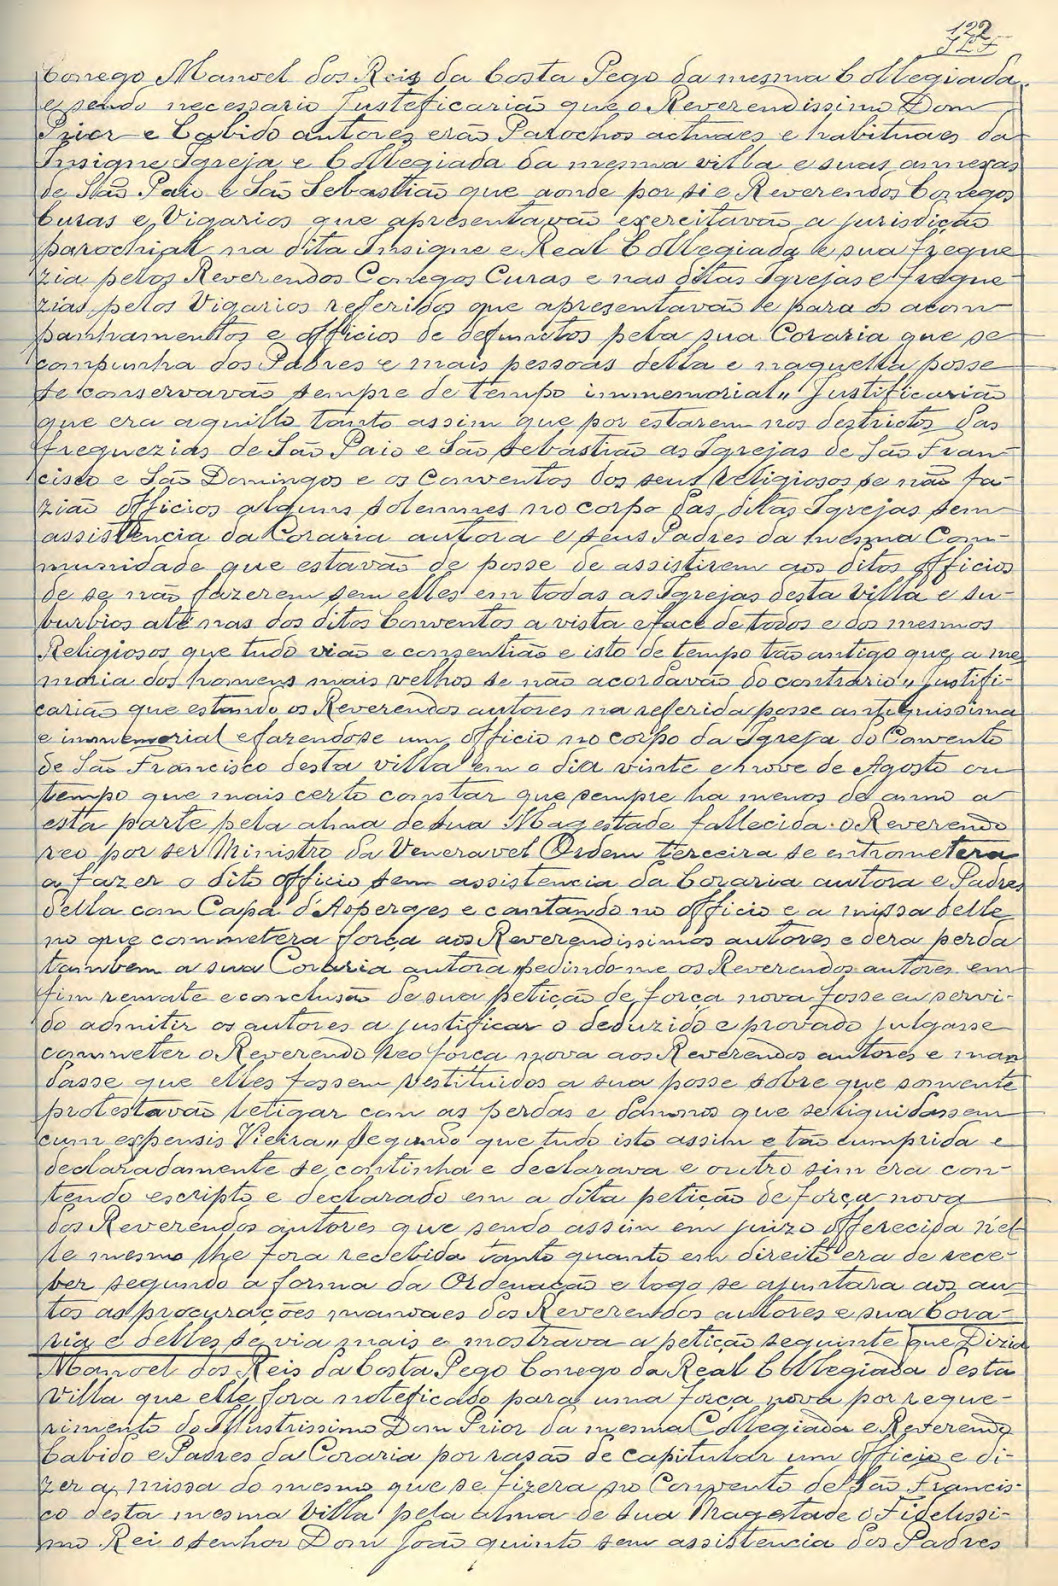 122
Conego Manoel dos Reis da Costa Pego da mesma Collegiada
e sendo necessario Justeficarião que o Reverendissimo Dom
Prior e Cabido autores erão Parochos actuaes e habituaes da
Insigne Igreja e Collegiada da mesma villa e suas annexas
de São Paio e São Sebastião que aonde por si e Reverendos Conegos
Curas e Vigarios que apresentavão exercitavão a jurisdição
parochial na dita Insigne e Real Collegiada e sua fregue
zia pelos Reverendos Conegos Curas e nas ditas Igrejas e fregue-
zias pelos Vigarios referidos que apresentavão e para os acom
panhamentos e officios de defuntos pela sua Coraria que se
compunha dos Padres e mais pessoas della e naquella posse
se conservavão sempre de tempo immemorial„ Justificarião
que era aquillo tanto assim que por estarem nos destrictos das
freguezias de São Paio e São Sebastião as Igrejas de São Fran-
cisco e São Domingos e os Conventos dos seus religiosos se não fa-
zião officios alguns solemnes no corpo das ditas Igrejas sem
assistencia da Coraria autora e seus Padres da mesma Com-
munidade que estavão de posse de assistirem aos ditos officios
de se não fazerem sem elles em todas as Igrejas desta Villa e su-
burbios até nas dos ditos Conventos a vista e face de todos e dos mesmos
Religiosos que tudo vião e consentião e isto de tempo tão antigo que a me
moria dos homens mais velhos se não acordavão do contrario„ Justifi-
carião que estando os Reverendos autores na referida posse antiquissima
e immemorial e fazendo-se um officio no corpo da Igreja do Convento
de São Francisco desta villa em o dia vinte e nove de Agosto ou
tempo que mais certo constar que sempre ha menos de anno a
esta parte pela alma de sua Magestade fallecida o Reverendo
reo por ser Ministro da Veneravel Ordem terceira se entrometera
a fazer o dito officio sem assistencia da Coraria autora e Padres
della com Capa d'Asperges e cantando no officio e a missa delle
no que commetera força aos Reverendissimos autores e dera perda
tambem a sua Coraria autora pedindo-me os Reverendos autores em
fim remate e conclusão de sua petição de força nova fosse eu servi-
do admitir os autores a justificar o deduzido e provado julgasse
commeter o Reverendo reo força nova aos Reverendos autores e man
dasse que elles fossem restituidos a sua posse sobre que somente
protestavão letigar com as perdas e damnos que se liquidassem
cum expensis Vieira„ Segundo que tudo isto assim e tão cumprida e
declaradamente se continha e declarava e outro sim era con-
tendo escripto e declarado em a dita petição de força nova
dos Reverendos autores que sendo assim em juizo offerecida nel-
le mesmo lhe fora recebida tanto quanto em direito era de rece-
ber segundo a forma da Ordenação e logo se ajuntara aos au-
tos as procurações manuaes dos Reverendos autores e sua Cora-
ria e delles se via mais e mostrava a petição seguinte que Dizia
Manoel dos Reis da Costa Pego Conego da Real Collegiada desta
Villa que elle fora noteficado para uma força nova por reque-
rimento do Illustrissimo Dom Prior da mesma Collegiada e Reverendo
Cabido e Padres da Coraria por rasão de capitular um officio e di-
zer a missa do mesmo que se fizera no Convento de São Francis-
co desta mesma Villa pela alma de sua Magestade o Fidelissi-
mo Rei o senhor Dom João quinto sem assistencia dos Padres